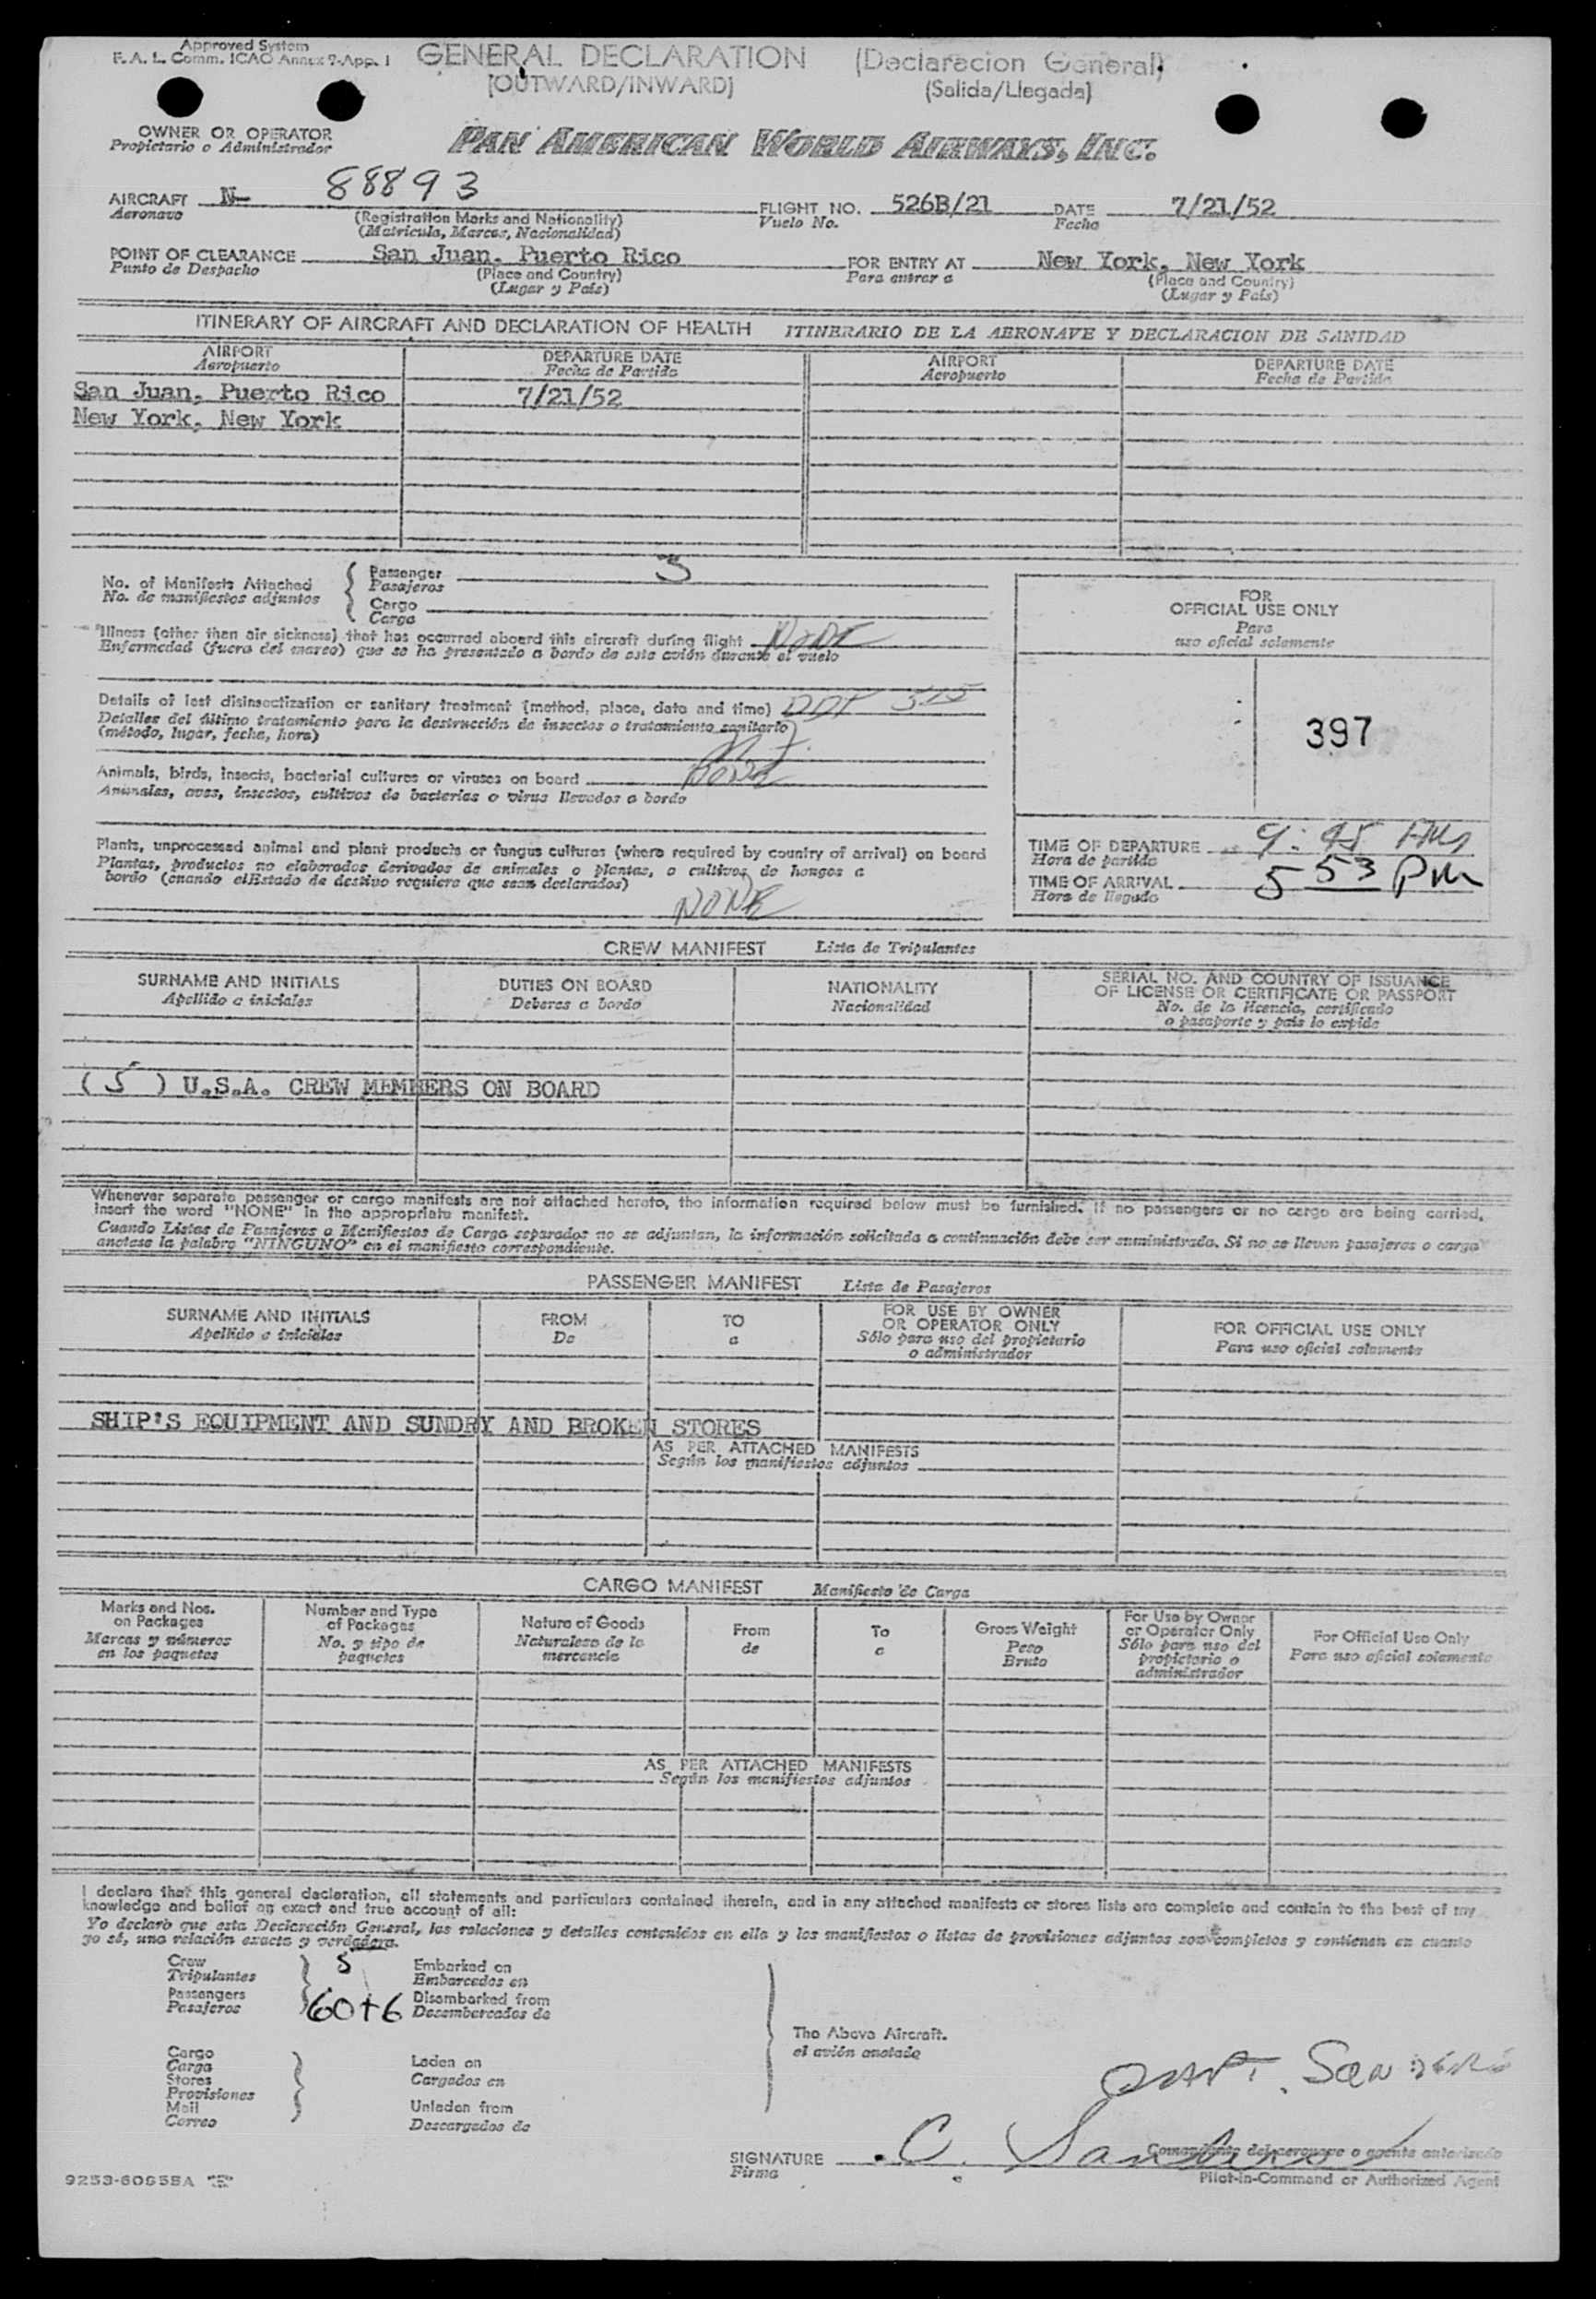 Approved System
F. A. L. Comm. ICAO Annex 9-App. 1
GENERAL DECLARATION (Declaracion General)
[OUTWARD/INWARD] (Salida/Llegada)
OWNER OR OPERATOR
Propietario o Administrador
PAN AMERICAN WORLD AIRWAYS, INC.
AIRCRAFT N- 88893 FLIGHT NO. 526B/21 DATE 7/21/52
Aeronave (Registration Marks and Nationality) Vuelo No. Fecha
(Matricula, Marcas, Nacionalidad)
POINT OF CLEARANCE San Juan, Puerto Rico FOR ENTRY AT New York, New York
Punto de Despacho (Place and Country) Para entrar a (Place and Country)
(Lugar y País) (Lugar y País)
ITINERARY OF AIRCRAFT AND DECLARATION OF HEALTH ITINERARIO DE LA AERONAVE Y DECLARACION DE SANIDAD
AIRPORT DEPARTURE DATE AIRPORT DEPARTURE DATE
Aeropuerto Fecha de Partida Aeropuerto Fecha de Partida
San Juan, Puerto Rico 7/21/52
New York, New York
No. of Manifests Attached
No. de manifiestos adjuntos
Passenger 3
Pasajeros
Cargo
Carga
Illness (other than air sickness) that has occurred aboard this aircraft during flight NONE
Enfermedad (fuera del mareo) que se ha presentado a bordo de este avión durante el vuelo
Details of last disinsectization or sanitary treatment (method, place, date and time) DDT 515
Detalles del último tratamiento para la destrucción de insectos o tratamiento sanitario)
(método, lugar, fecha, hora)
Animals, birds, insects, bacterial cultures or viruses on board None
Animales, aves, insectos, cultivos de bacterias o virus llevados a bordo
Plants, unprocessed animal and plant products or fungus cultures (where required by country of arrival) on board
Plantas, productos no elaborados derivados de animales o plantas, o cultivos de hongos a
bordo (cuando elEstado de destino requiere que sean declarados)
NONE
FOR
OFFICIAL USE ONLY
Para
uso oficial solamente
397
TIME OF DEPARTURE 9:45 AM
Hora de partida
TIME OF ARRIVAL 5 53 PM
Hora de llegada
CREW MANIFEST Lista de Tripulantes
SURNAME AND INITIALS DUTIES ON BOARD NATIONALITY SERIAL NO. AND COUNTRY OF ISSUANCE
OF LICENSE OR CERTIFICATE OR PASSPORT
Apellido e iniciales Deberes a bordo Nacionalidad No. de la licencia, certificado
o pasaporte y país lo expide
( 5 ) U.S.A. CREW MEMBERS ON BOARD
Whenever separate passenger or cargo manifests are not attached hereto, the information required below must be furnished. If no passengers or no cargo are being carried,
insert the word "NONE" in the appropriate manifest.
Cuando Listas de Pasajeros o Manifiestos de Carga separados no se adjuntan, la información solicitada a continuación debe ser suministrada. Si no se llevan pasajeros o carga
anotese la palabra "NINGUNO" en el manifiesto correspondiente.
PASSENGER MANIFEST Lista de Pasajeros
SURNAME AND INITIALS FROM TO FOR USE BY OWNER
OR OPERATOR ONLY FOR OFFICIAL USE ONLY
Apellido e iniciales De a Sólo para uso del propietario
o administrador Para uso oficial solamente
SHIP'S EQUIPMENT AND SUNDRY AND BROKEN STORES
AS PER ATTACHED MANIFESTS
Según los manifiestos adjuntos
CARGO MANIFEST Manifiesto de Carga
Marks and Nos.
on Packages
Marcas y números
en los paquetes
Number and Type
of Packages
No. y tipo de
paquetes
Nature of Goods
Naturaleza de la
mercancia
From
de
To
a
Gross Weight
Peso
Bruto
For Use by Owner
or Operator Only
Sólo para uso del
propietario o
administrador
For Official Use Only
Para uso oficial solamente
AS PER ATTACHED MANIFESTS
Según los manifiestos adjuntos
I declare that this general declaration, all statements and particulars contained therein, and in any attached manifests or stores lists are complete and contain to the best of my
knowledge and belief an exact and true account of all:
Yo declaro que esta Declaración General, las relaciones y detalles contenidos en ella y los manifiestos o listas de provisiones adjuntos son completos y contienen en cuanto
yo sé, una relación exacta y verdadera.
Crew 5 Embarked on
Tripulantes Embarcados en
Passengers 60+6 Disembarked from
Pasajeros Desembarcados de
The Above Aircraft.
el avión anotado
Cargo
Carga
Stores
Provisiones
Mail
Correo
Laden on
Cargados en
Unladen from
Descargados de
CAPT.
SIGNATURE C.
Firma
Comandante del aeronave o agente autorizado
Pilot-in-Command or Authorized Agent
9253-6085BA "E"